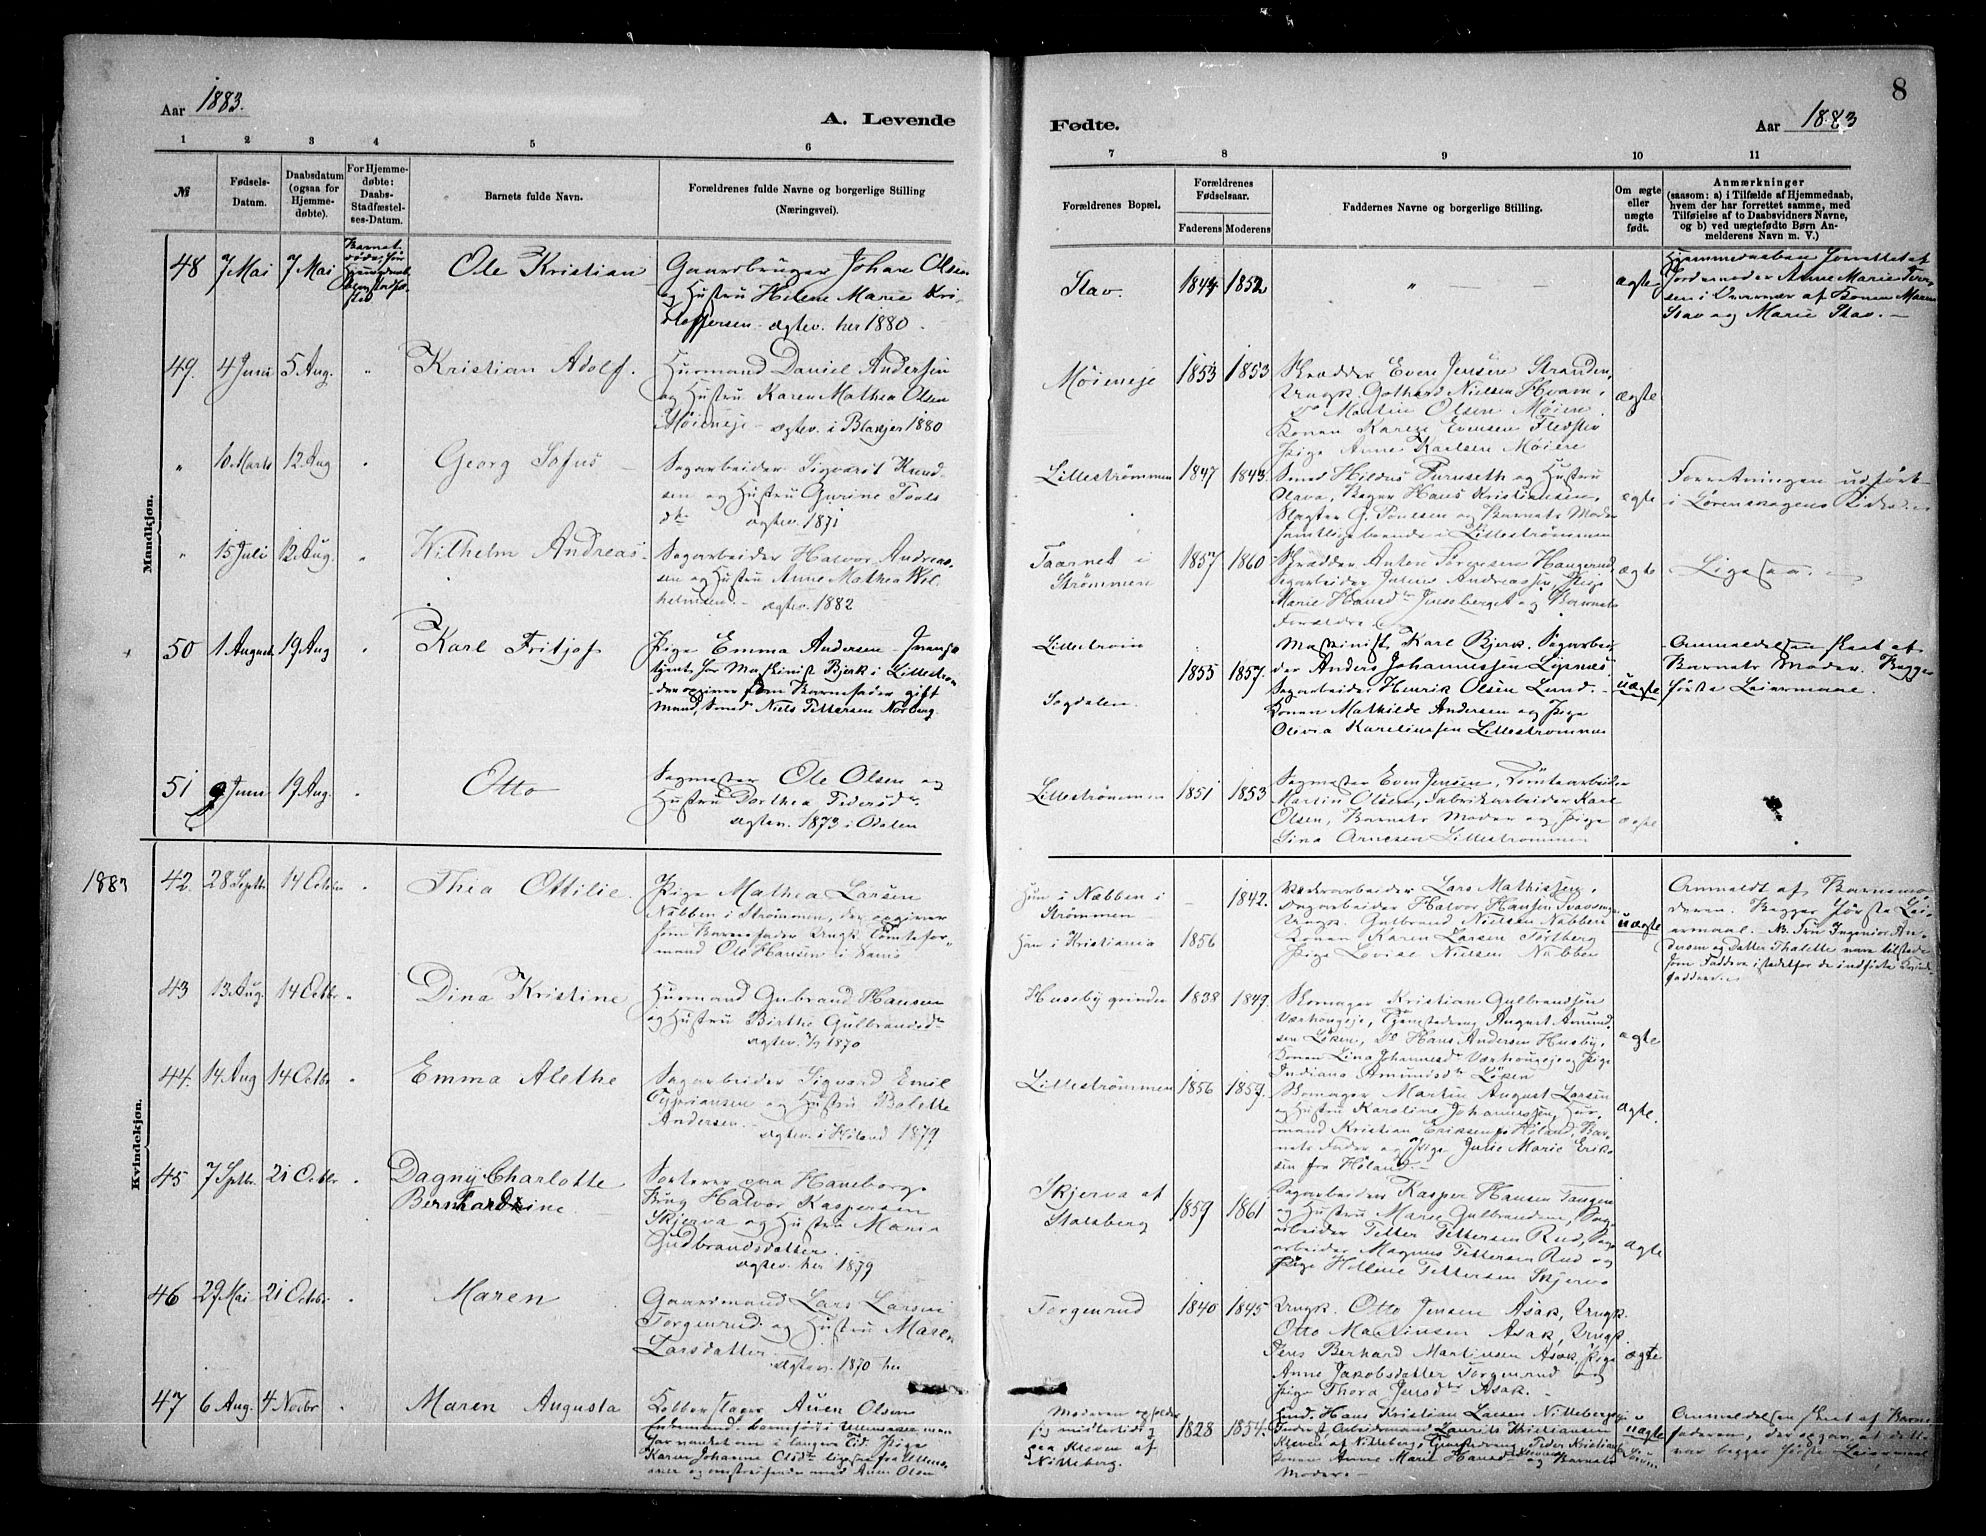 8
Aar 1883.
A. Levende
Fødte.
Aar 1883
1 2 3 4 5 6 7 8 9 10 11
№
Fødsels-
Datum.
Daabsdatum
(ogsaa for
Hjemme-
døbte).
For Hjemme-
døbte:
Daabs-
Stadfæstel-
ses-Datum.
Barnets fulde Navn.
Forældrenes fulde Navne og borgerlige Stilling
(Næringsvei).
Forældrenes Bopæl.
Forældrenes
Fødselsaar.
Faderens Moderens
Faddernes Navne og borgerlige Stilling.
Om ægte
eller
uægte
født.
Anmærkninger
(saasom: a) i Tilfælde af Hjemmedaab,
hvem der har forrettet samme, med
Tilføielse af to Daabsvidners Navne,
og b) ved uægtefødte Børn An-
melderens Navn m. V.)
Mandkjøn.
48 7 Mai 7 Mai
Barnet
døde før
Ole Kristian
Gaardbruger Johan Olsen
og Hustru Helene Marie Kri-
stoffersen - ægtev. her 1880.
Stav.
1844 1852
" — —
ægte
Hjemmedaaben forrettet af
Jordemoder Anne Marie Iver-
sen i Nærvær af Konen Maren
Stav og Marie Stav. —
49. 4 Juni 5 Aug. "
Kristian Adolf.
Husmand Daniel Andersen
og Hustru Karen Mathea Olsen
Møieneje - ægtev. i Blakjer 1880
Møieneje
1853 1853
Skrædder Even Jensen Stranden,
Ungk. Gothard Nielsen Hvam,
Do Martin Olsen Møiere.
Konen Karen Evensen
Pige Anne Karlsen Møiere
ægte
" 10 Marts 12 Aug "
Georg Sofus —
Sagarbeider Sigvart Knud-
sen og Hustru Gurine Pouls
dtr ægtev. 1871
Lillestrømmen
1847 1843.
Smed Hildus Furuseth og Hustru
Olava, Bager Hans Kristiansen,
Slagter G. Poulsen og Barnets Moder
samtlige boende i Lillestrømmen
ægte
Forretningen udført
i Lørenskogens Kirke
" 15 Juli 12 Aug. "
Wilhelm Andreas.
Sagarbeider Halvor Andreas-
sen og Hustru Anne Mathea Wil-
helmsen. - ægtev. 1882
Taarnet i
Strømmen
1857 1860
Skrædder Anton Sørensen Haugerud,
Sagarbeider Julius Andreassen, Pige
Marie Hansdtr og Barnets
Forældre
ægte
Ligesaa. —
50 1 August 19 Aug "
Karl Fritjof
Pige Emma Andersen
tjent hos Maskinist Bjerk i Lillestrøm
der opgiver som Barnefader gift
Mand, Smed Niels Pettersen Norberg.
Lillestrøm
Sogdalen.
1855 1857.
Maskinist Karl Bjerk, Sagarbei-
der Anders Johannessen Lysnæs
Sagarbeider Henrik Olsen Lund.
Konen Mathilde Andersen og Pige
Olivia Karelinssen Lillestrømmen
uægte
Anmeldelsen skeet af
Barnets Moder. Begges
første Leiermaal.
51 9 Juni 19 Aug. "
Otto
Sagmester Ole Olsen og
Hustru Dorthea Pedersdtr.
ægtev. 1873 i Odalen
Lillestrømmen
1851 1853
Sagmester Even Jensen, Tomtearbeider
Martin Olsen, Fabrikarbeider Karl
Olsen, Barnets Moder og Pige
Lina Arnesen Lillestrømmen
ægte
Kvindekjøn.
1883
42. 28 Septbr 14 Octbr "
Thea Ottilie.
Pige Mathea Larsen
Nabben i Strømmen, der opgiver
som Barnefader Ungk. Tomtefor-
mand Ole Hansen i samme
Hun i Nabben i
Strømmen
Han i Kristiania
— 1842.
1856
Lars Mathissen,
Dagarbeider Halvor Hansen
Ungk. Gulbrand Nielsen Nabben
Konen Karen Larsen Tortberg
Pige Lovise Nielsen Nabben
uægte
Anmeldt af Barnemo-
deren. Begges første Lei-
ermaal. NB. Fru Ingeniør An-
dersen og Datter Thalette vare tilstede
som Faddere istedetfor de indførte Kvinde-
faddere.
43 13 Aug. 14 Octbr "
Dina Kristine
Husmand Gubrand Hansen
og Hustru Birthe Gulbrandsdtr
ægtev. 1870
Huseby grinder
1838 1849
Skomager Kristian Gulbrandsen
Værhougeje, Tjenestedreng August Amund-
sen Løken, Do Hans Andersen Husby,
Konen Lina Johannesdtr Værhougeje og Pige
Indiana Amundsdtr Løken
ægte
44. 14 Aug 14 Octbr "
Emma Alethe
Sagarbeider Sigvard Emil
Cyprianssen og Hustru Bolette
Andersen. —
ægtev. i Høland 1879
Lillestrømmen
1856 1859.
Skomager Martin August Larsen
og Hustru Karoline Johannessen, Hus-
mand Kristian Eriksen fra Høland, Bar-
nets Fader og Pige Julie Marie Erik-
sen fra Høland. —
ægte.
45 7 Septbr. 21 Octbr "
Dagny Charlotte
Bernhardine
Sorterer paa Haneborge
Brug Halvor Kaspersen
Skjerva og Hustru Maria
Gudbrandsdatter.
ægtev. her 1879
Skjerva af
Stalsberg
1859 1861
Sagarbeider Kasper Hansen Tangen
og Hustru Marie Gulbrandsen, Sag-
arbeider Petter Pettersen Rud, Sag-
arbeider Magnus Pettersen Rud og
Pige Hellene Pettersen Skjerva
ægte
46 29 Mai 21 Octbr "
Maren
Gaardmand Lars Larsen
Torgenrud og Hustru Maren
Larsdatter.
ægtev. 1870 her
Torgenrud
1840 1845
Ungk. Otto Jensen Asak, Ungk.
Otto Martinsen Asak, Ungk.
Jens Berhard Martinsen Asak, Pige
Anne Jakobsdatter Torgenrud og
Pige Thora Jensdtr Asak. —
ægte
47 6 Aug. 4 Novbr "
Maren Augusta
Olsen
Karen Johanne Olsdtr ligesaa fra Ullens-
aker og omstreifende med Olsen
Moderen opholder
sig midlertidig
paa Kleven af
Nitteberg.
1828 1854.
Hans Kristian Larsen Nitteberg
Arbeidsmand Laurits Kristiansen
Kleven af Nitteberg, Tjenestedreng Peder Kristiansen
Konen Anne Marie Hansdtr og Barnets
Moder. —
uægte
Anmeldelsen skeet af Barne-
faderen, der opgav, at dette
var begges første Leiermaal